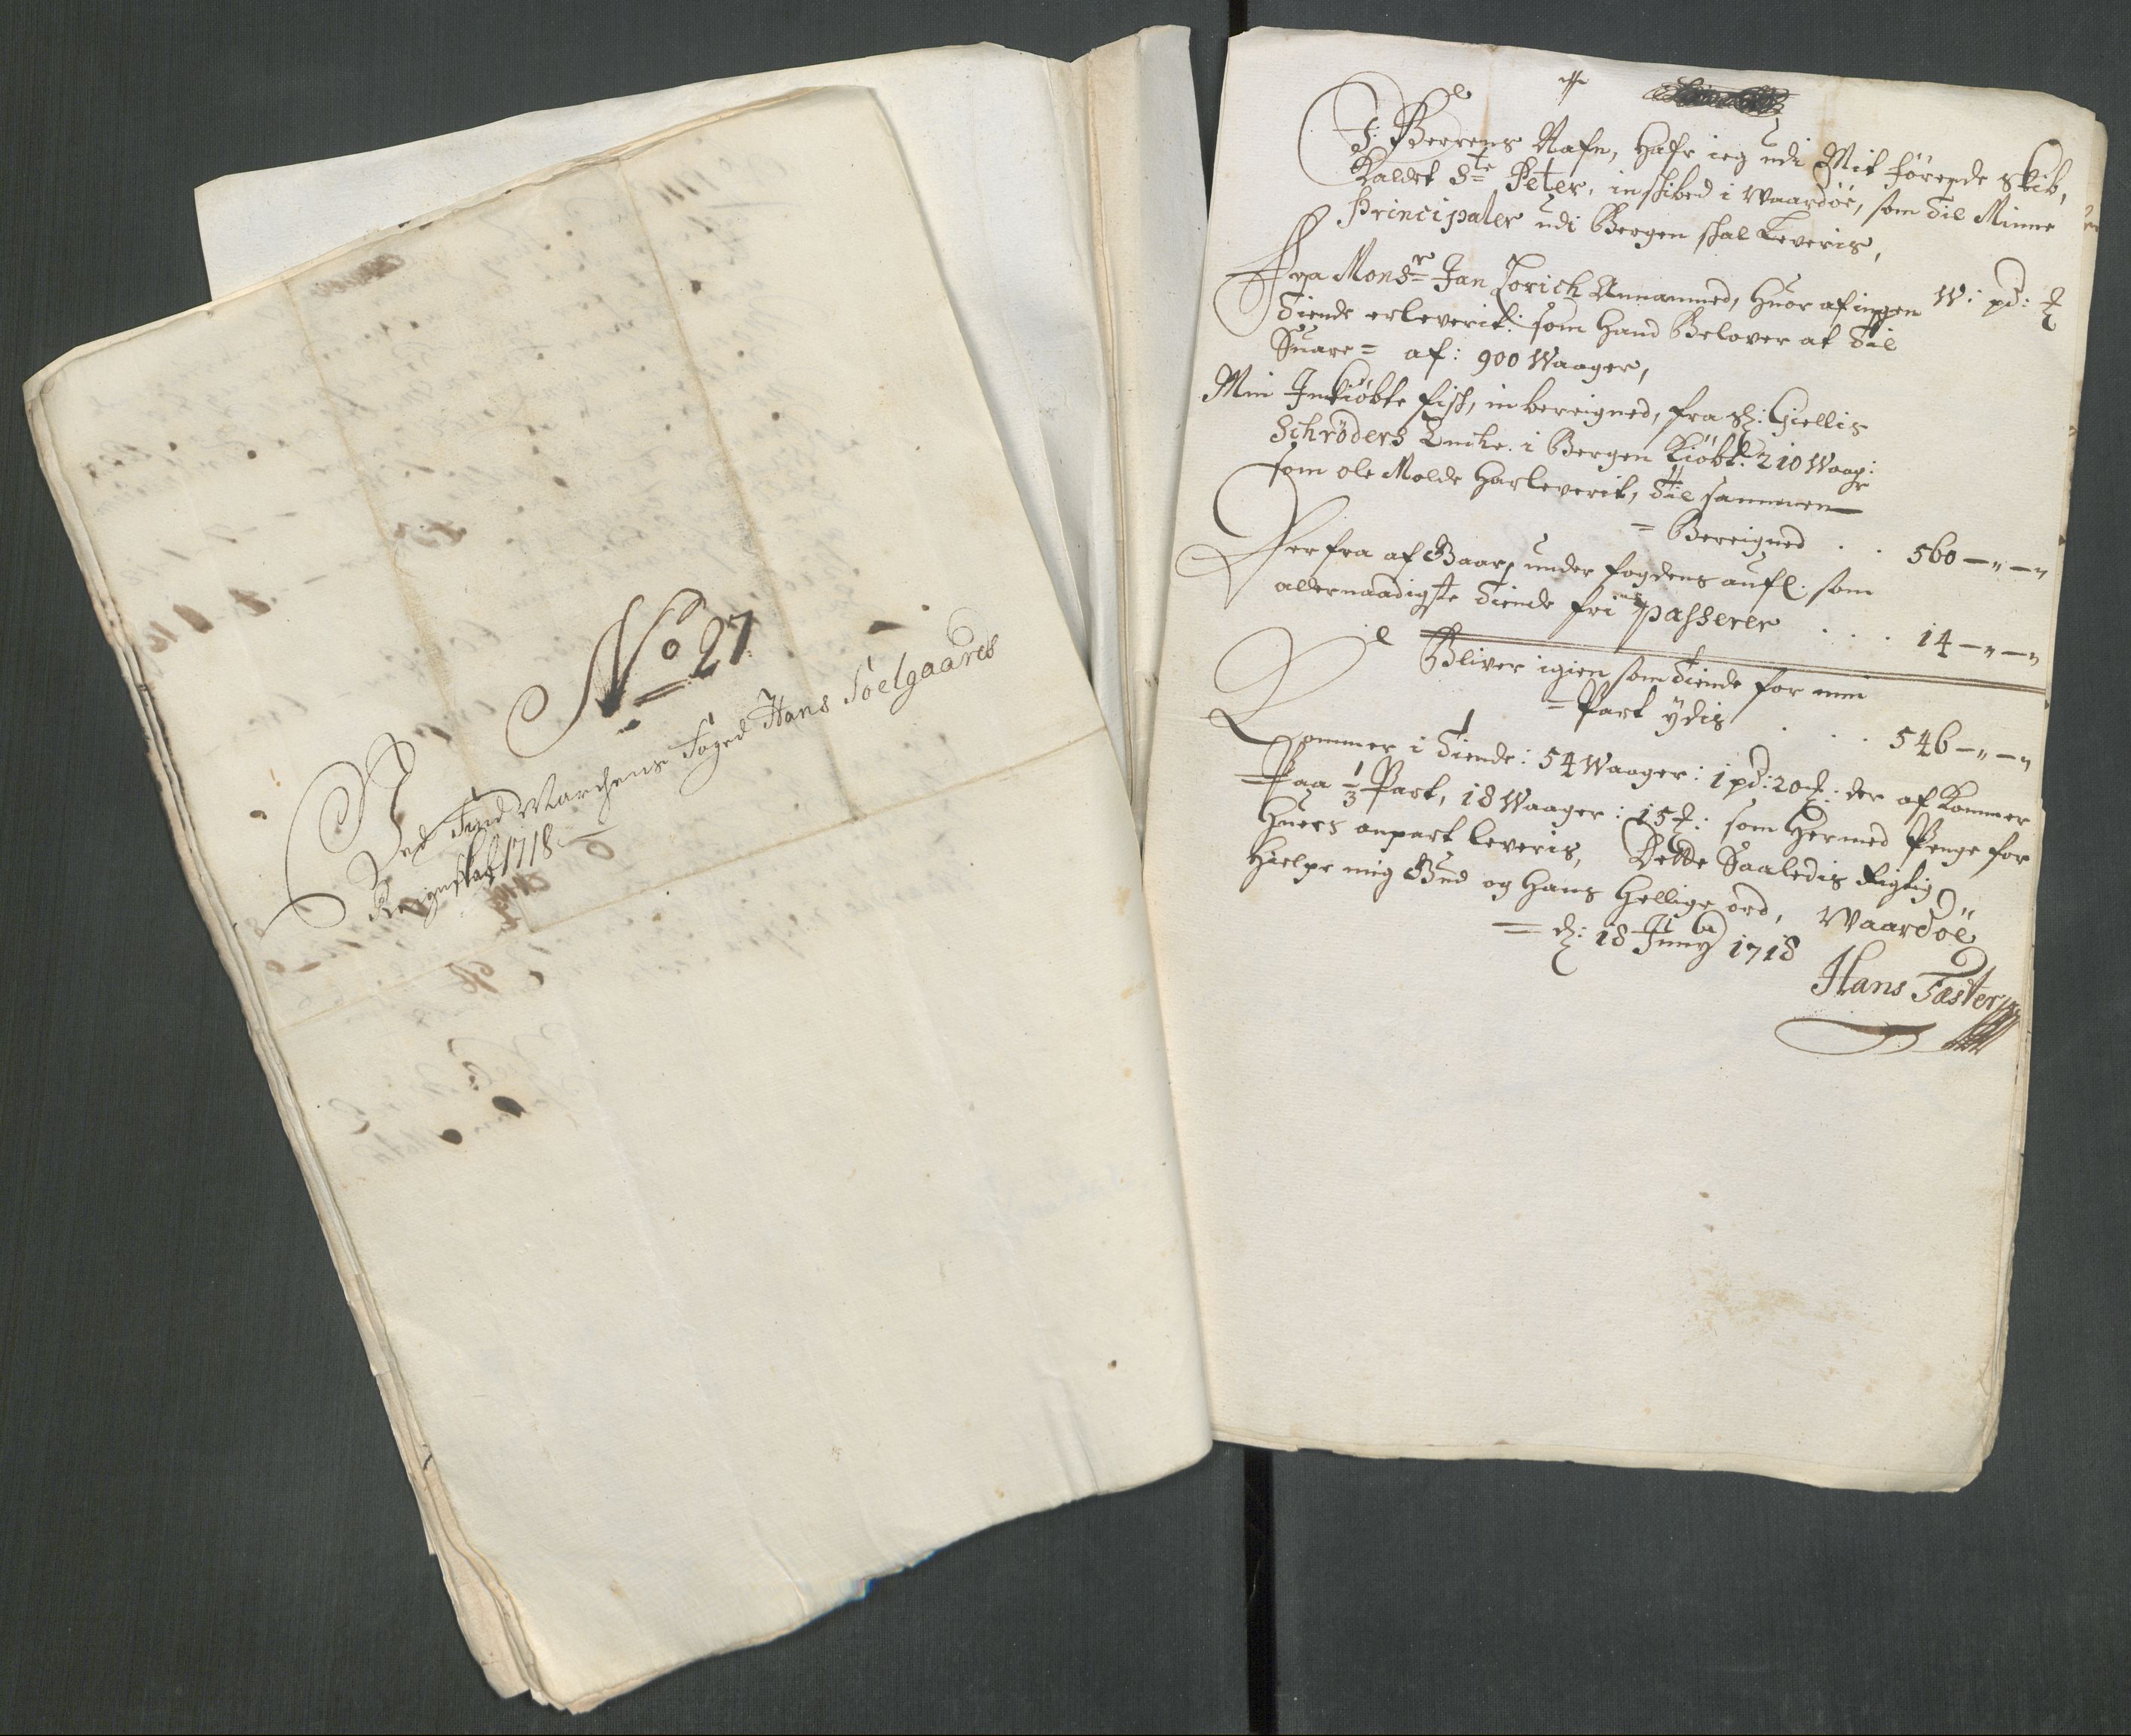 No 27
Ved Findmarchens Foged Hans Soelgaards
Regenskab 1718
J: Herrens Nafn, Hafr ieg udi Mit förende skib,
Kaldet Ste Peter, inskibed i Waardöe, som til Minne
Principaler udi Bergen skal Leveris,
W: pd: 
Fra Monsr Jan Lorich Annammed, huor af ingen
Tiende erleverit: som hand Belover at til
Suare = af: 900 Waager,
Min Indkiöbte fisk, inbereigned, fra Sl: Giellis
Schröders Encke i Bergen Kiöbt: 210 Waag:
som ole Molde Harleverit, til sammen
= Bereigned . . 560 - „ - „
Der fra af under fogdens som
allernaadigste tiende fri passerer . . . 14 - „ - „
Bliver igien som tiende for min
= Part ydis . . . 546 - „ - „
Kommer i tiende: 54 Waager: 1 pd: 20 : der af Kommer
Paa 1/3 Part, 18 Waager: 15 : som hermed Penge for
huers anpart leveris, Dette Saaledis Rigtig
Hielpe mig Gud og Hans Hellige ord, Waardöe
d: 18 Juny 1718
Hans Fæster